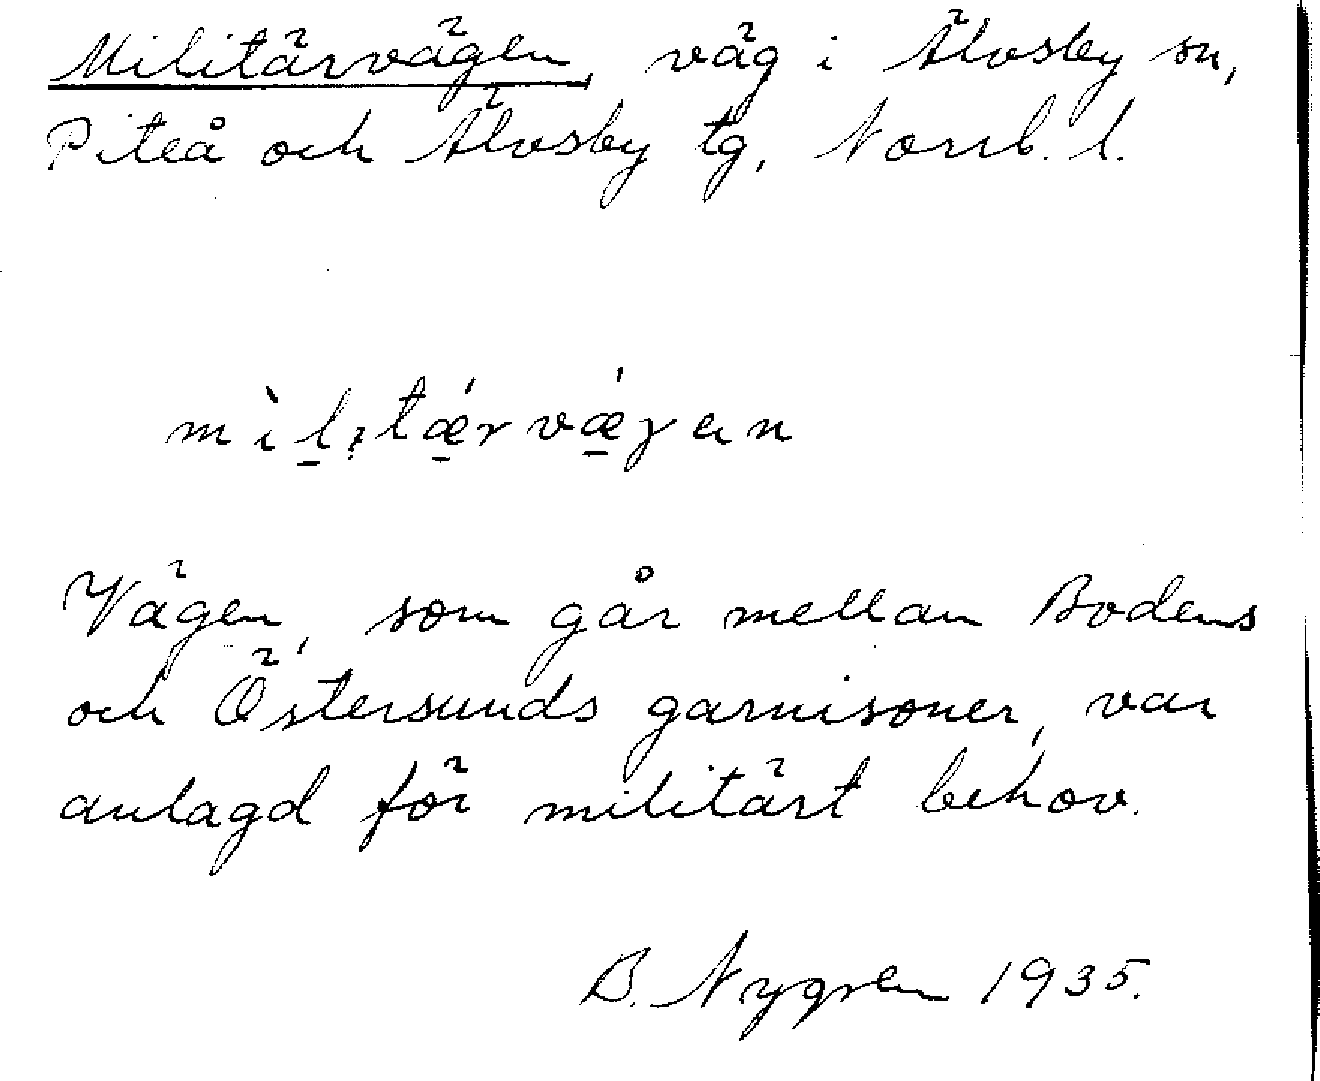 Militärvägen, väg i Älvsby sn,
Piteå och Älvsby tg, Norrb. l.
mìl̠ıtǽ̠rvǽ̠gɐn
Vägen, som går mellan Bodens
och Östersunds garnisoner, var
anlagd för militärt behov.
B. Nygren 1935.